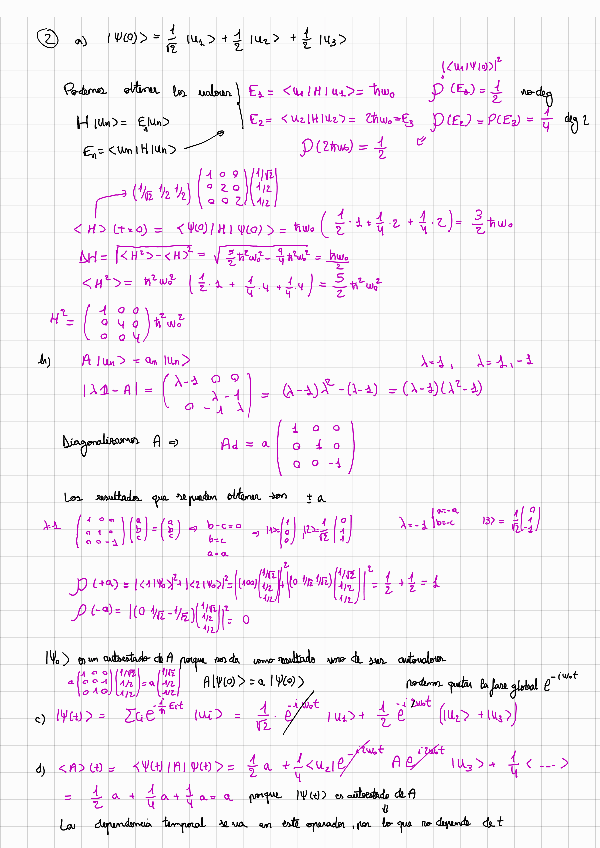 ② a) |Ψ(0)> = 1/√2 |u₁> + 1/2 |u₂> + 1/2 |u₃>
|<u₁|Ψ(0)>|²
Podemos obtener los valores { E₁ = <u₁|H|u₁> = ħω₀ P(E₁) = 1/2 no deg
H|uₙ> = Eₙ|uₙ> E₂ = <u₂|H|u₂> = 2ħω₀ = E₃ P(E₂) = P(E₂) = 1/4 deg 2
Eₙ = <uₙ|H|uₙ> P(2ħω₀) = 1/2
(1/√2 1/2 1/2) (1 0 0; 0 2 0; 0 0 2) (1/√2; 1/2; 1/2)
<H>(t=0) = <Ψ(0)|H|Ψ(0)> = ħω₀ (1/2 · 1 + 1/4 · 2 + 1/4 · 2) = 3/2 ħω₀
ΔH = √(<H²> - <H>²) = √(5/2 ħ²ω₀² - 9/4 ħ²ω₀²) = ħω₀/2
<H²> = ħ²ω₀² (1/2 · 1 + 1/4 · 4 + 1/4 · 4) = 5/2 ħ²ω₀²
H² = (1 0 0; 0 4 0; 0 0 4) ħ²ω₀²
b) A|uₙ> = aₙ|uₙ> λ=1, λ=1,-1
|λ1 - A| = (λ-1 0 0; λ -1; 0 -1 λ) = (λ-1)λ² - (λ-1) = (λ-1)(λ²-1)
Diagonalizamos A ⇒ Ad = a (1 0 0; 0 1 0; 0 0 -1)
Los resultados que se pueden obtener son ± a
λ=1 (1 0 0; 0 1 0; 0 0 -1) (a; b; c) = (a; b; c) ⇒ b-c=0 b=c a=a → |1> = (1; 0; 0), |2> = 1/√2 (0; 1; 1) λ=-1 | a=-a b=-c |3> = 1/√2 (0; 1; -1)
P(+a) = |<1|Ψ₀>|² + |<2|Ψ₀>|² = |(1 0 0)(1/√2; 1/2; 1/2)|² + |(0 1/√2 1/√2)(1/√2; 1/2; 1/2)|² = 1/2 + 1/2 = 1
P(-a) = |(0 1/√2 -1/√2)(1/√2; 1/2; 1/2)|² = 0
|Ψ₀> es un autoestado de A porque nos da como resultado uno de sus autovalores
a (1 0 0; 0 0 1; 0 1 0) (1/√2; 1/2; 1/2) = a (1/√2; 1/2; 1/2) A|Ψ(0)> = a|Ψ(0)> podemos quitar la fase global e^(-iω₀t)
c) |Ψ(t)> = Σcᵢ e^(-i/ħ Eᵢt) |uᵢ> = 1/√2 · e^(-iω₀t) |u₁> + 1/2 e^(-i2ω₀t) (|u₂> + |u₃>)
d) <A>(t) = <Ψ(t)|A|Ψ(t)> = 1/2 a + 1/4 <u₂| e^(-i2ω₀t) A e^(i2ω₀t) |u₃> + 1/4 <...>
= 1/2 a + 1/4 a + 1/4 a = a porque |Ψ(t)> es autoestado de A
⇓
La dependencia temporal se va en este operador, por lo que no depende de t